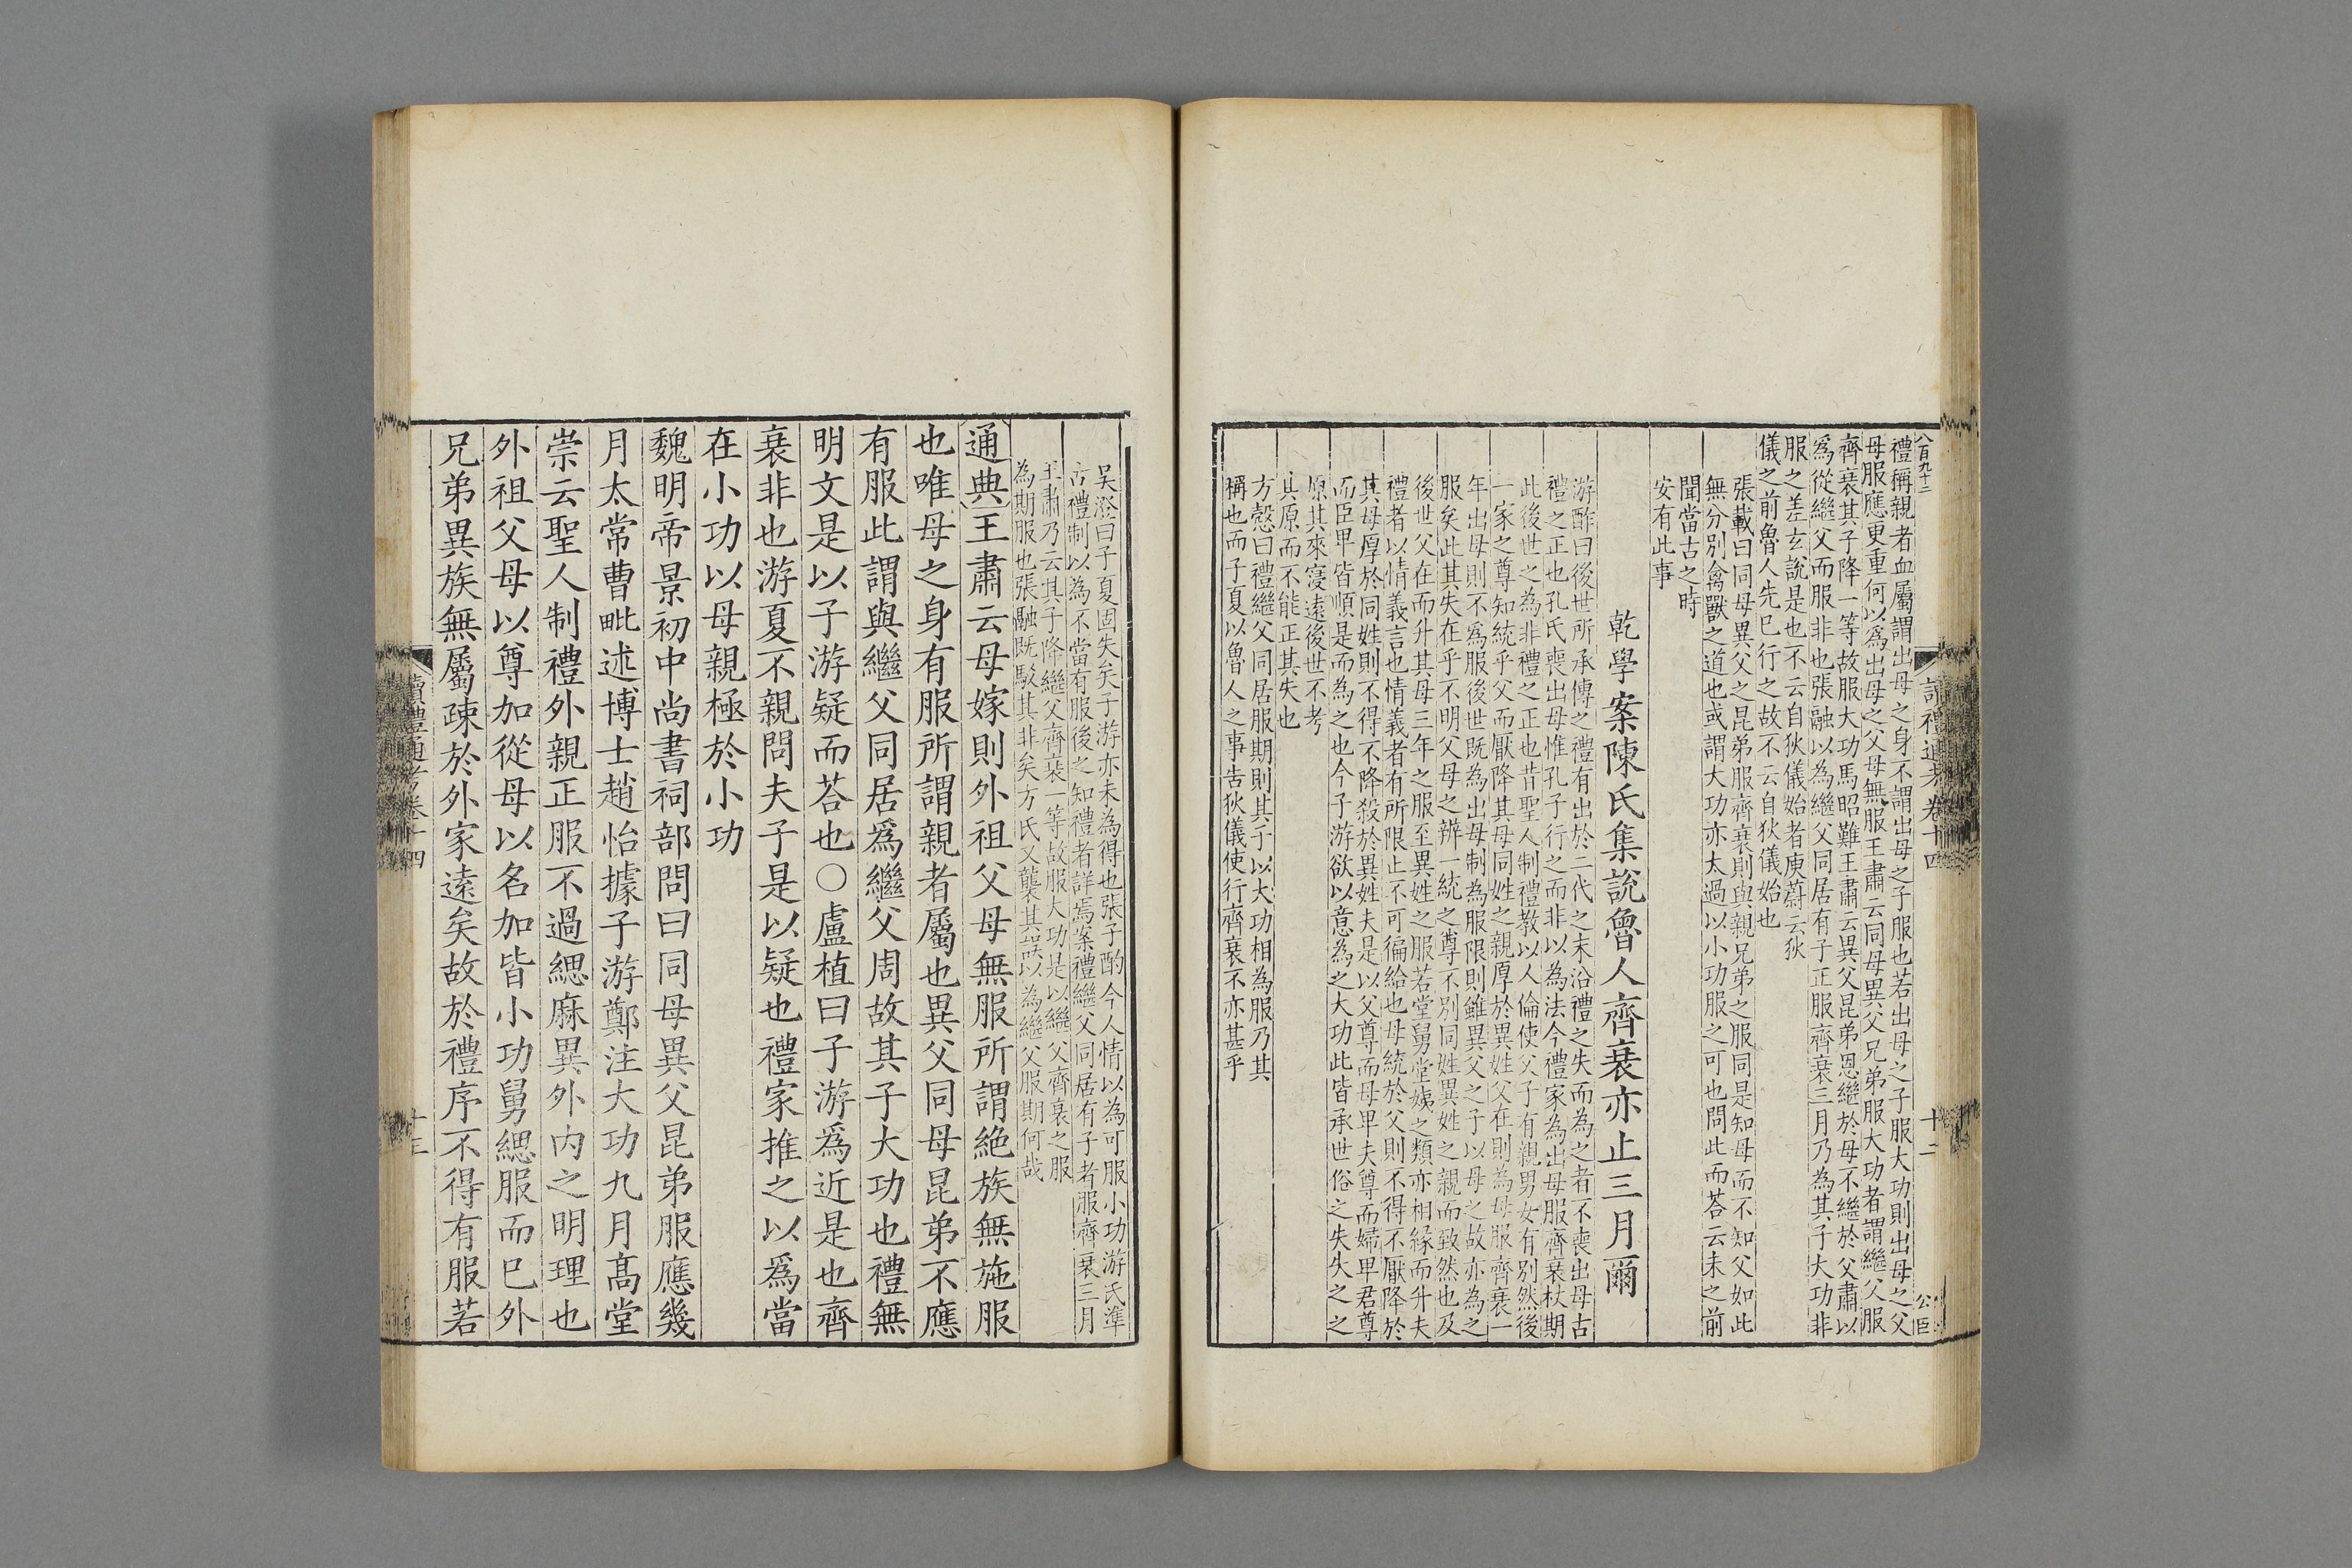 八百九十二
讀禮通考卷十四
十二
公臣
禮稱親者血屬謂出母之身不謂出母之子服也若出母之子服大功則出母之父
母服應更重何以爲出母之父母無服王肅云同母異父兄弟服大功者謂繼父服
齊衰其子降一等故服大功馬昭難王肅云異父昆弟恩繼於母不繼於父肅以
爲從繼父而服非也張融以為繼父同居有子正服齊衰三月乃為其子大功非
服之差玄說是也不云自狄儀始者庾蔚云狄
儀之前魯人先已行之故不云自狄儀始也
張載曰同母異父之昆弟服齊衰則與親兄弟之服同是知母而不知父如此
無分別禽獸之道也或謂大功亦太過以小功服之可也問此而荅云未之前
聞當古之時
安有此事
乾學案陳氏集說魯人齊衰亦止三月爾
游酢曰後世所承傳之禮有出於二代之末沿禮之失而為之者不喪出母古
禮之正也孔氏喪出母惟孔子行之而非以為法今禮家為出母服齊衰杖期
此後世之為非禮之正也昔聖人制禮教以人倫使父子有親男女有別然後
一家之尊知統乎父而厭降其母同姓之親厚於異姓父在則為母服齊衰一
年出母則不爲服後世既為出母制為服限則雖異父之子以母之故亦為之
服矣此其失在乎不明父母之辨一統之尊不別同姓異姓之親而致然也及
後世父在而升其母三年之服至異姓之服若堂舅堂姨之類亦相緣而升夫
禮者以情義言也情義者有所限止不可徧給也母統於父則不得不厭降於
其母厚於同姓則不得不降殺於異姓夫是以父尊而母卑夫尊而婦卑君尊
而臣卑皆順是而為之也今子游欲以意為之大功此皆承世俗之失失之之
原其來寖遠後世不考
其原而不能正其失也
方慤曰禮繼父同居服期則其子以大功相為服乃其
稱也而子夏以魯人之事告狄儀使行齊衰不亦甚乎
吳澄曰子夏固失矣子游亦未為得也張子酌今人情以為可服小功游氏準
古禮制以為不當有服後之知禮者詳焉案禮繼父同居有子者服齊衰三月
王肅乃云其子降繼父齊衰一等故服大功是以繼父齊衰之服
為期服也張融既駁其非矣方氏又襲其誤以為繼父服期何哉
通典王肅云母嫁則外祖父母無服所謂絶族無施服
也唯母之身有服所謂親者屬也異父同母昆弟不應
有服此謂與繼父同居爲繼父周故其子大功也禮無
明文是以子游疑而荅也○盧植曰子游爲近是也齊
衰非也游夏不親問夫子是以疑也禮家推之以爲當
在小功以母親極於小功
魏明帝景初中尚書祠部問曰同母異父昆弟服應幾
月太常曹毗述博士趙怡據子游鄭注大功九月高堂
崇云聖人制禮外親正服不過緦麻異外內之明理也
外祖父母以尊加從母以名加皆小功舅緦服而已外
兄弟異族無屬疎於外家遠矣故於禮序不得有服若
讀禮通考卷十四
十三